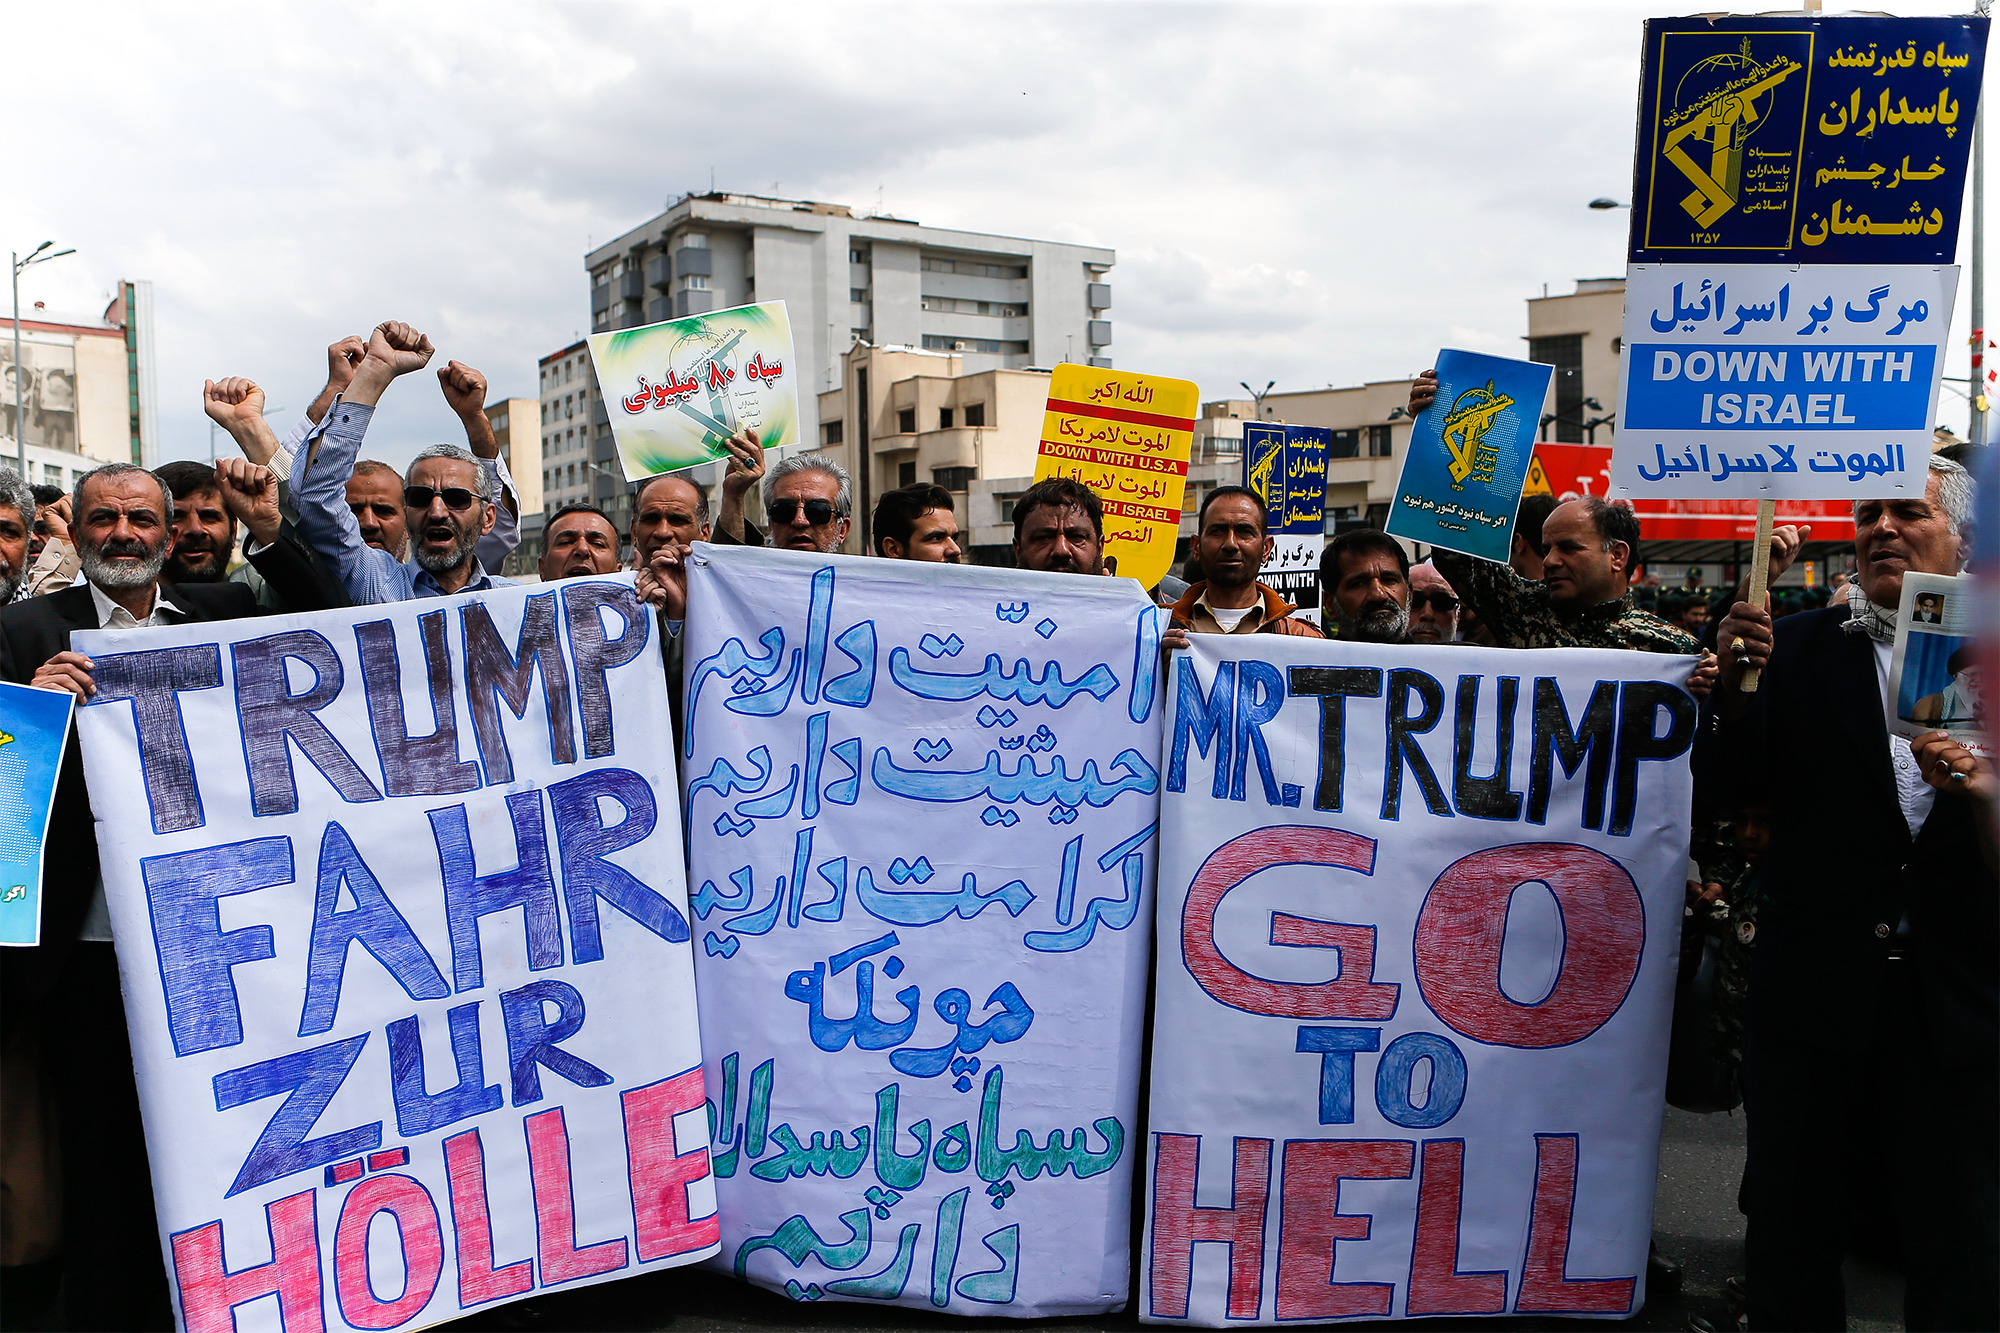 TRUMP
FAHR
ZUR
HÖLLE
امنیّت داریم
حیثیّت داریم
کرامت داریم
چونکه
سپاه پاسداران
داریم
MR. TRUMP
GO
TO
HELL
سپاه ۸۰ میلیونی
الله اکبر
الموت لامریکا
DOWN WITH U.S.A
الموت لاسرائیل
سپاه قدرتمند
پاسداران
خارچشم
دشمنان
مرگ بر
اگر سپاه نبود کشور هم نبود
واعدوا لهم ما استطعتم من قوة
سپاه
پاسداران
انقلاب
اسلامی
۱۳۵۷
سپاه قدرتمند
پاسداران
خارچشم
دشمنان
مرگ بر اسرائیل
DOWN WITH
ISRAEL
الموت لاسرائیل
اگر